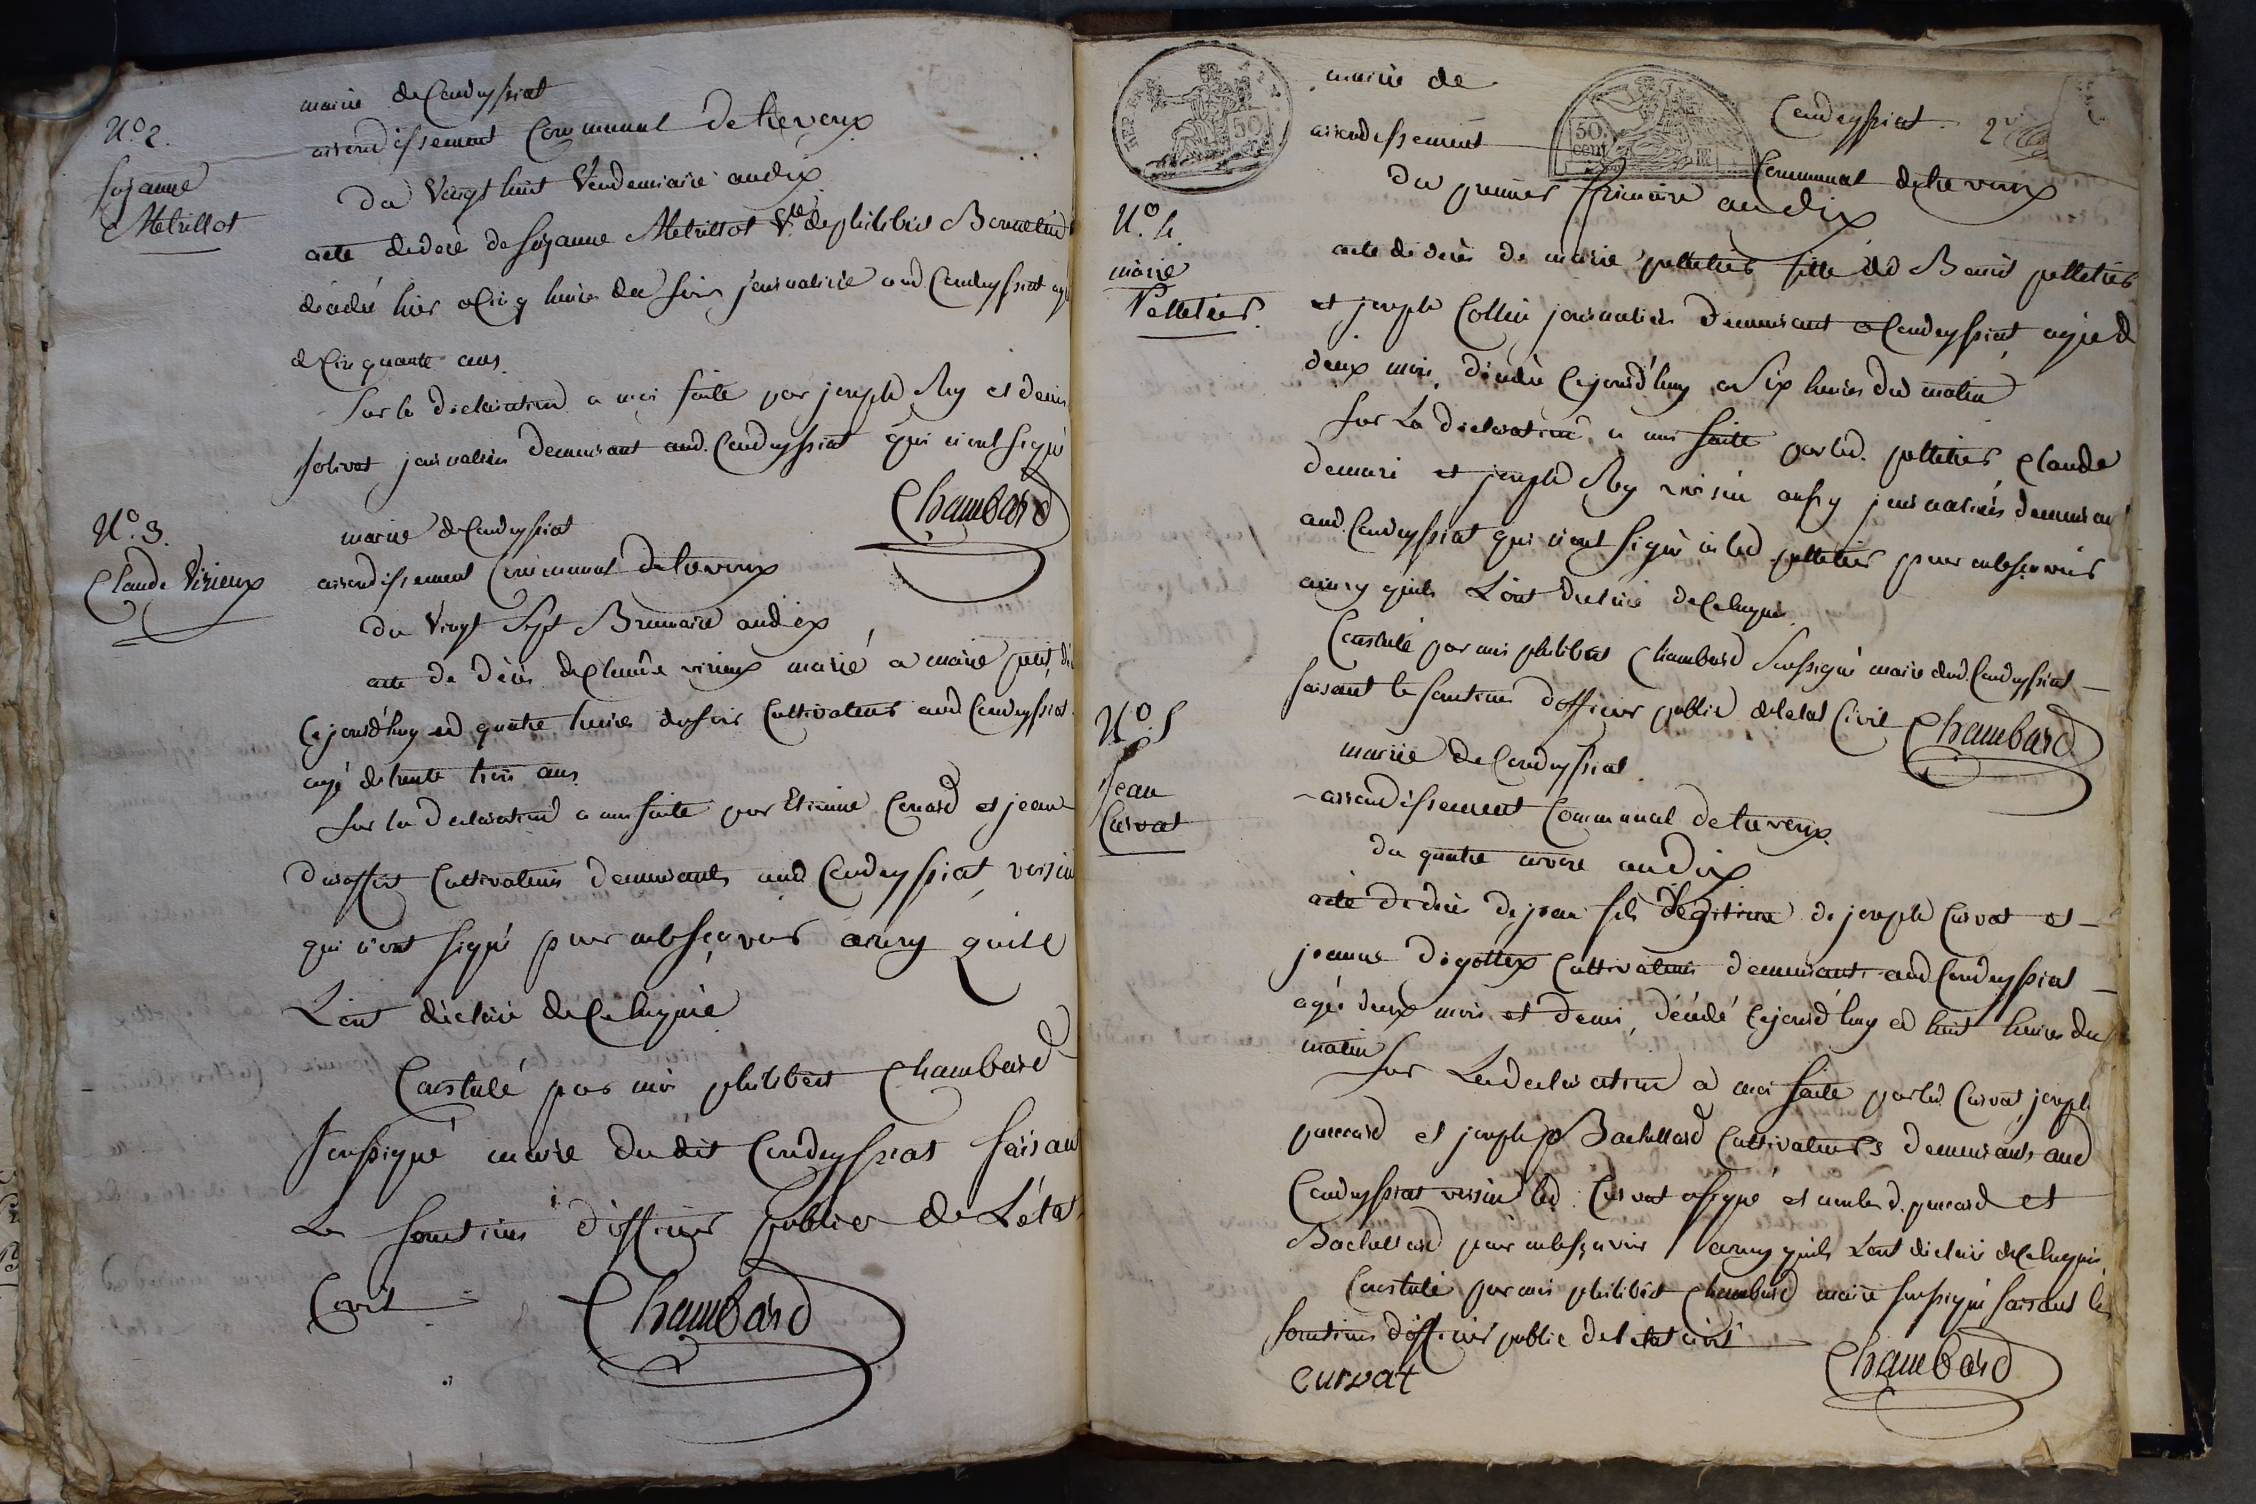 mairie de Condeyssiat
N.º 2.
arrondissement Communal de trevoux
Suzanne
Metrillot
Du Vingt huit Vendemiaire an dix
acte de décè de Suzanne Metrillot Ve. de philibert
décédé hier a Cinq heures du soir journaliere aud. Condeyssiat agé
de Cinquante ans.
Sur la déclaration a moi faite par joseph Rey et denis
jolivet journaliers demeurant aud. Condeyssiat qui n'ont signé
Chambard
N.º 3.
Claude Virieux
mairie de Condeyssiat
arrondissement Communal de trevoux
Du Vingt Sept Brumaire an dix
acte de décès de Claude virieux marié a marie petit
Cejourd'huy a quatre heures du soir Cultivateur aud. Condeyssiat
agé de trente trois ans
Sur la declaration a moi faite par Etienne et jean
Cultivateurs demeurants aud. Condeyssiat, voisins
qui n'ont signé pour ne le sçavoir ainsy qu'ils
L'ont déclaré de Ce enquis
Constaté par moi philibert Chambard
soussigné maire dudit Condeyssiat faisant
Les fonctions d'officier public de L'état
Civil
Chambard
REP. FRA.
50
mairie de Condeyssiat
50.
cent.
arrondissement Communal de trevoux
du premier frimaire an dix
N.º 4.
marie
Pelletier.
acte de decès de marie pelletier fille de Benoit pelletier
et joseph Collin journaliers demeurant a Condeyssiat, agée de
deux mois, décédée Cejourd'huy a Six heures du matin
Sur La déclaration a moi faite par led. pelletier, Claude
demari et joseph Rey voisin ausy journaliers demeurant
aud. Condeyssiat qui n'ont signé ni led. pelletier pour ne le sçavoir
ainsy qu'ils L'ont declaré de Ce enquis
Constaté par moi philibert Chambard Soussigné maire dud. Condeyssiat
faisant les fonctions d'officier public de l'etat Civil Chambard
N.º 5
Jean
Curvat
mairie de Condeyssiat.
arrondissement Communal de trevoux.
du quatre nivose an Dix
acte de décès de jean fils légitime de joseph Curvat et
jeanne Cultivateurs demeurants aud. Condeyssiat
agé deux mois et demi, décédé Cejourd'huy a huit heures du
matin
Sur La declaration a moi faite par led. Curvat, joseph
poncard et joseph Bachellard Cultivateurs demeurants aud.
Condeyssiat voisins led. Curvat a signé et non led. poncard et
Bachellard pour ne le sçavoir ainsy qu'ils L'ont déclaré de Ce enquis
Constaté par moi philibert Chambard maire soussigné faisant les
fonctions d'officier public de l'etat civil
Chambard
curvat